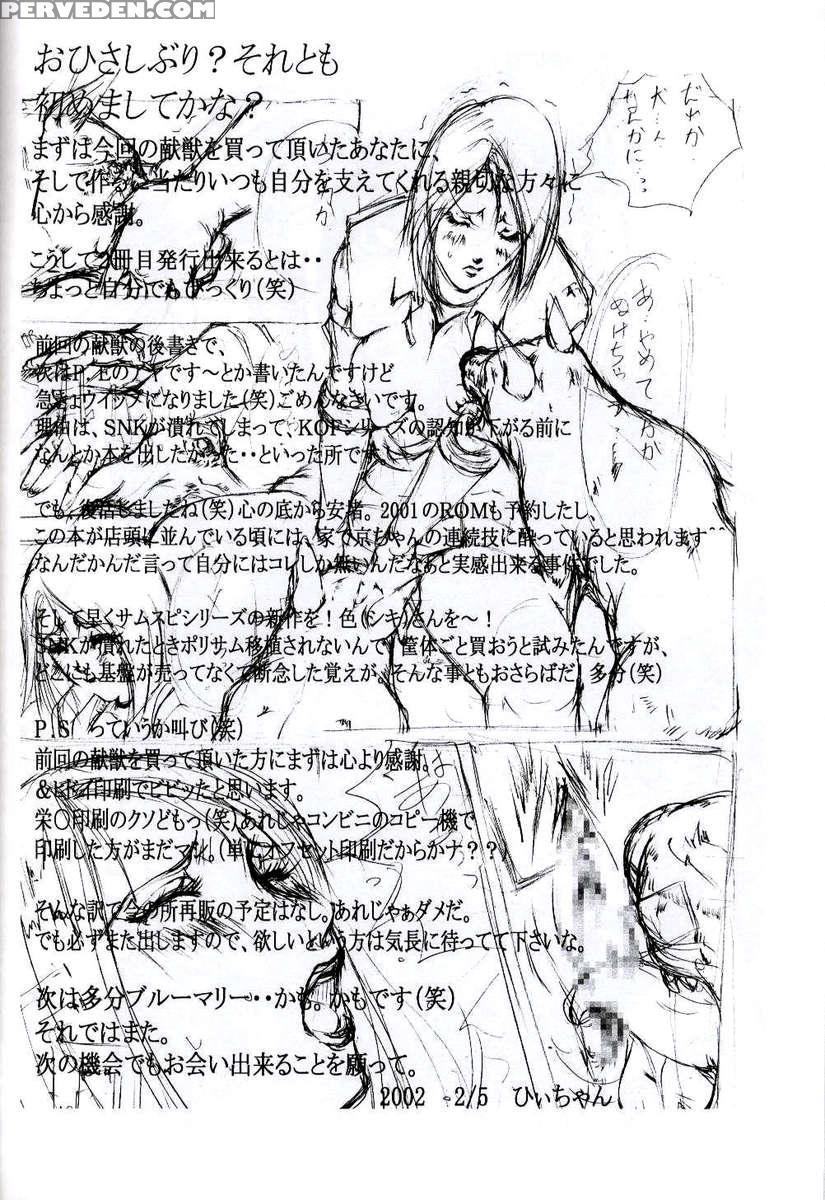 PERVEDEN.COM
おひさしぶり？それとも
初めましてかな？
まずは今回の献獣を買って頂いたあなたに、
そして作るに当たりいつも自分を支えてくれる親切な方々に
心から感謝。
こうして2冊目発行出来るとは・・
ちょっと自分でもびっくり(笑)
前回の献獣の後書きで、
次はP.Eのアヤです〜とか書いたんですけど
急きょウイップになりました(笑)ごめんなさいです。
理由は、SNKが潰れてしまって、KOFシリーズの認知が下がる前に
なんとか本を出したかった・・といった所です
でも、復活しましたね(笑)心の底から安堵。2001のROMも予約したし、
この本が店頭に並んでいる頃には、家で京ちゃんの連続技に酔っていると思われます^^
なんだかんだ言って自分にはコレしか無いんだなぁと実感出来る事件でした。
そして早くサムスピシリーズの新作を！色(シキ)さんを〜！
SNKが潰れたときポリサム移植されないんで、筐体ごと買おうと試みたんですが、
どこにも基盤が売ってなくて断念した覚えが。そんな事ともおさらばだ！多分(笑)
P.S っていうか叫び(笑)
前回の献獣を買って頂いた方にまずは心より感謝。
&ヒドイ印刷でビビッたと思います。
栄〇印刷のクソどもっ(笑)あれじゃコンビニのコピー機で
印刷した方がまだマシ。(単にオフセット印刷だからかナ？？)
そんな訳で今の所再販の予定はなし。あれじゃぁダメだ。
でも必ずまた出しますので、欲しいという方は気長に待ってて下さいな。
次は多分ブルーマリー・・かも。かもです(笑)
それではまた。
次の機会でもお会い出来ることを願って。
2002 2/5 ひぃちゃん
あ・やめて